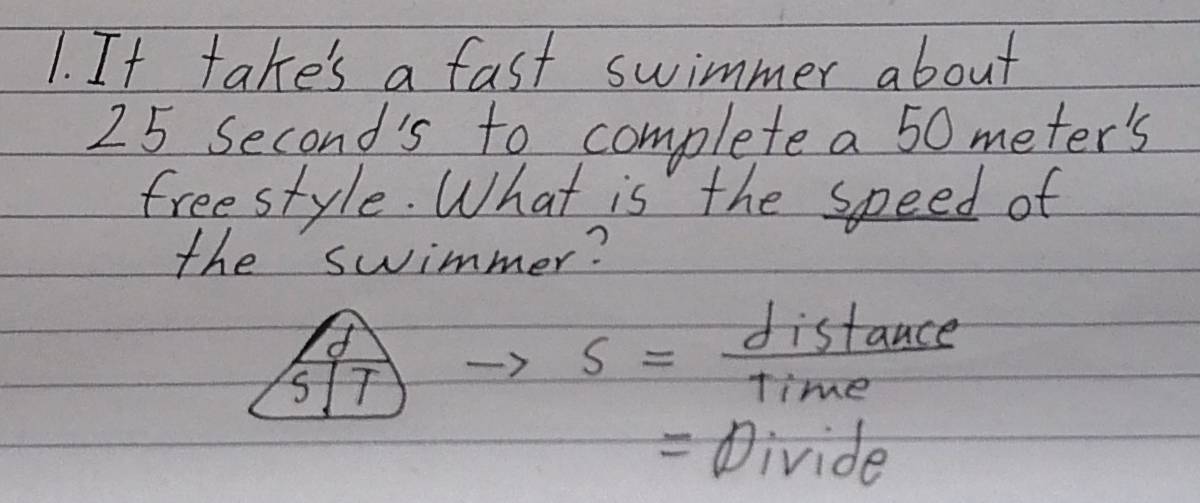 1. It take's a fast swimmer about
25 second's to complete a 50 meter's
freestyle. What is the speed of
the swimmer?
d
S T
→ S = distance
Time
= Divide